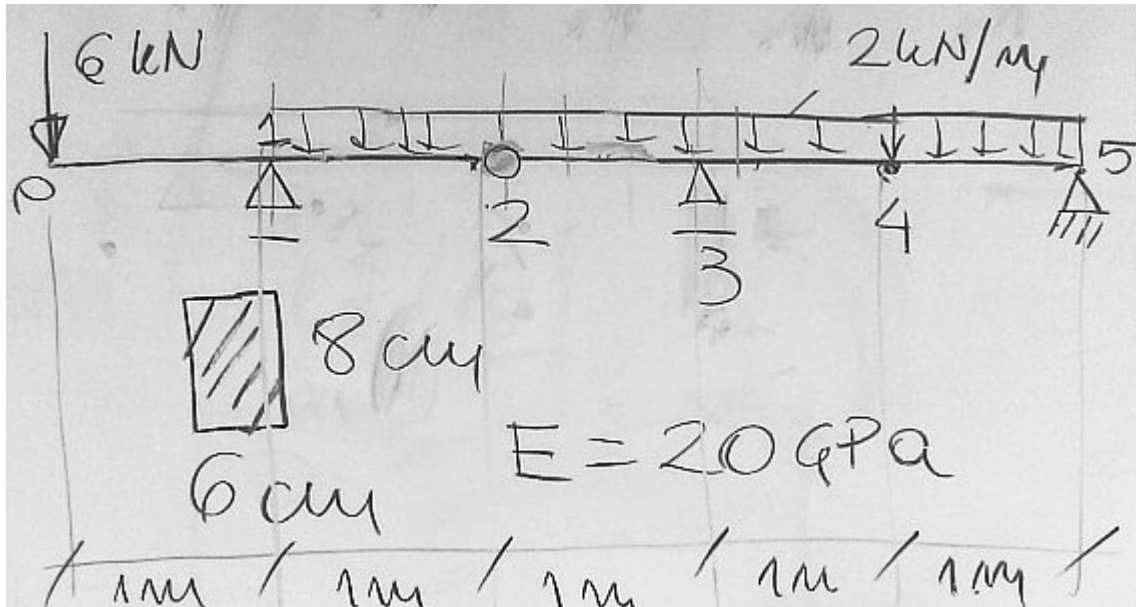 6 kN 2 kN/m
0 1 2 3 4 5
8 cm
6 cm
E = 20 GPa
1m 1m 1m 1m 1m